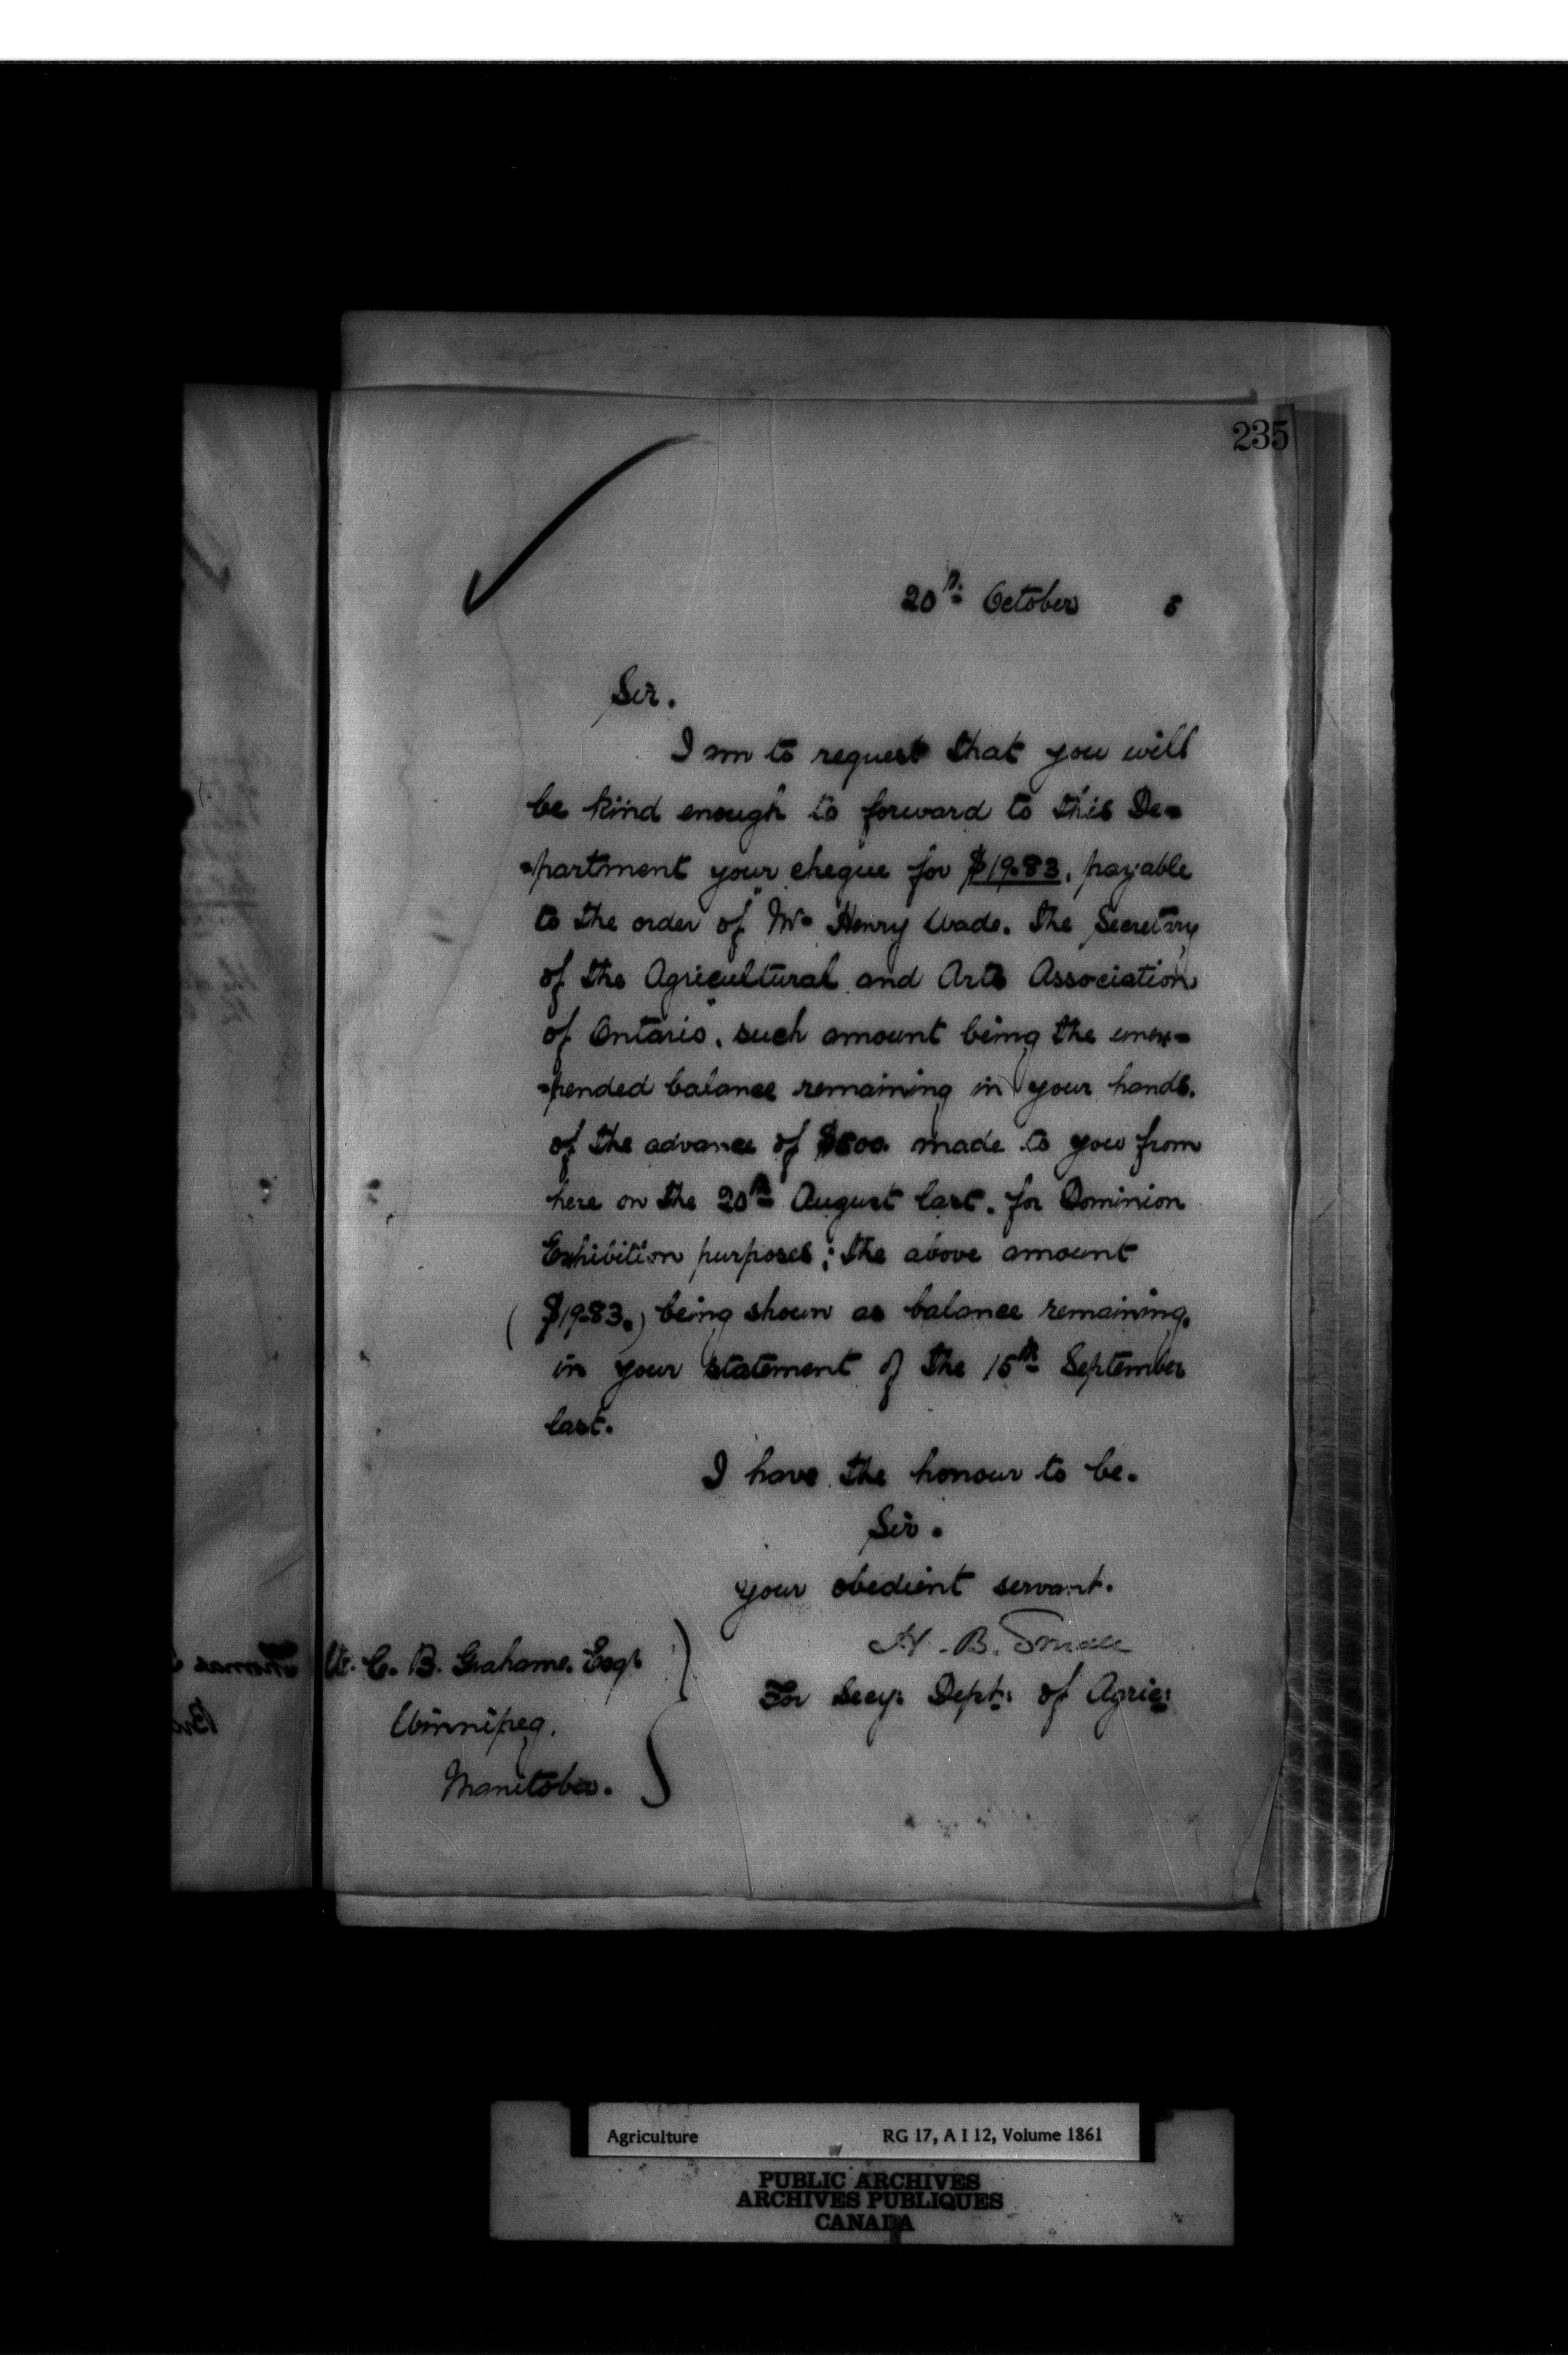 235
20th October 5
Sir.
I am to request that you will
be kind enough to forward to this De=
=partment your cheque for $19.83, payable
to the order of Mr Henry Wade. the Secretary
of the Agricultural and Arts Association
of Ontario, such amount being the unex=
=pended balance remaining in your hands.
of the advance of $500. made to you from
here on the 20th August last. for Dominion
Exhibition purposes; the above amount
($19.83.) being shown as balance remaining,
in your statement of the 15th September
last.
I have the honour to be.
Sir.
your obedient servant.
H. B. Small
For Secy: Dept: of Agric:
C. B. Grahame. Esqr
Winnipeg.
Manitoba.
Agriculture RG 17, A I 12, Volume 1861
PUBLIC ARCHIVES
ARCHIVES PUBLIQUES
CANADA